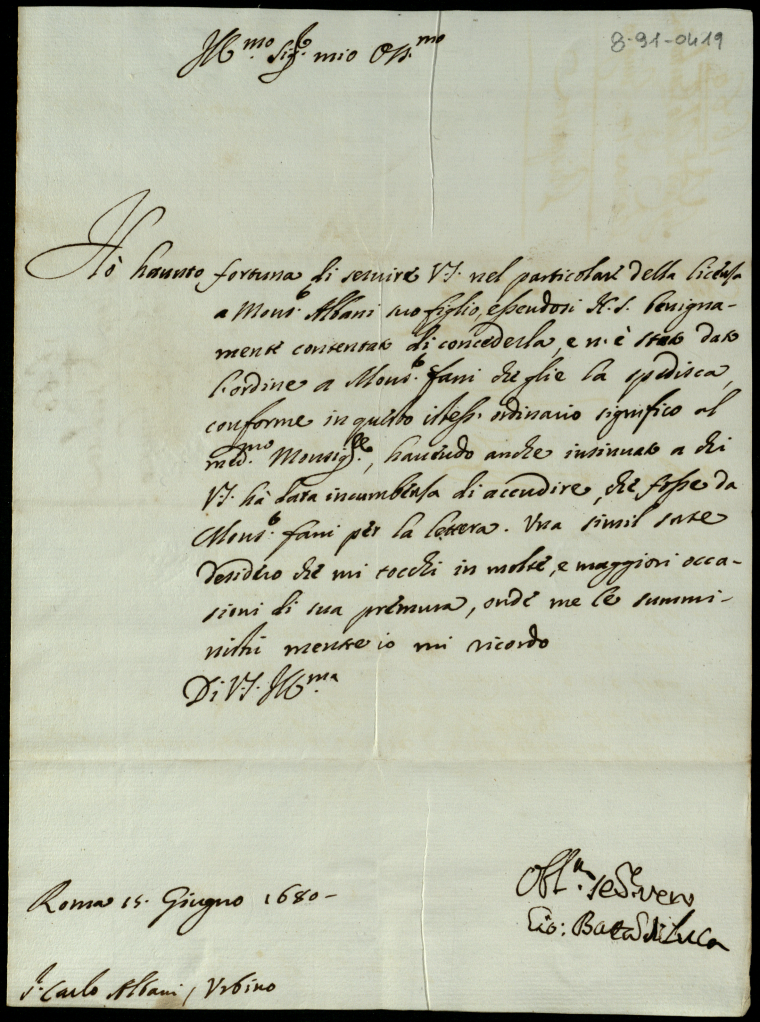 8-91-0419
Ill.mo Sig.r mio Oss.mo
Hò hauuto fortuna di seruire V.S. nel particolare della licenza
a Mons.r Albani suo figlio, essendosi N.S. benigna-
mente contentato di concederla, e n'è stato dato
l'ordine a Mons.r Fani che glie la spedisca,
conforme in questo istess. ordinario significo al
med.mo Monsig.re, hauendo anche insinuato a chi
V.S. hà data incumbenza di accudire, che fosse da
Mons.r Fani per la lettera. Una simil sorte
desidero che mi tocchi in molte, e maggiori occa-
sioni di sua premura, onde me le summi-
nistri mentre io mi ricordo
Di V.S. Ill.ma
Roma 15. Giugno 1680-
Obl.mo se.r vero
Gio: Batta di Luca
S.r Carlo Albani / Urbino